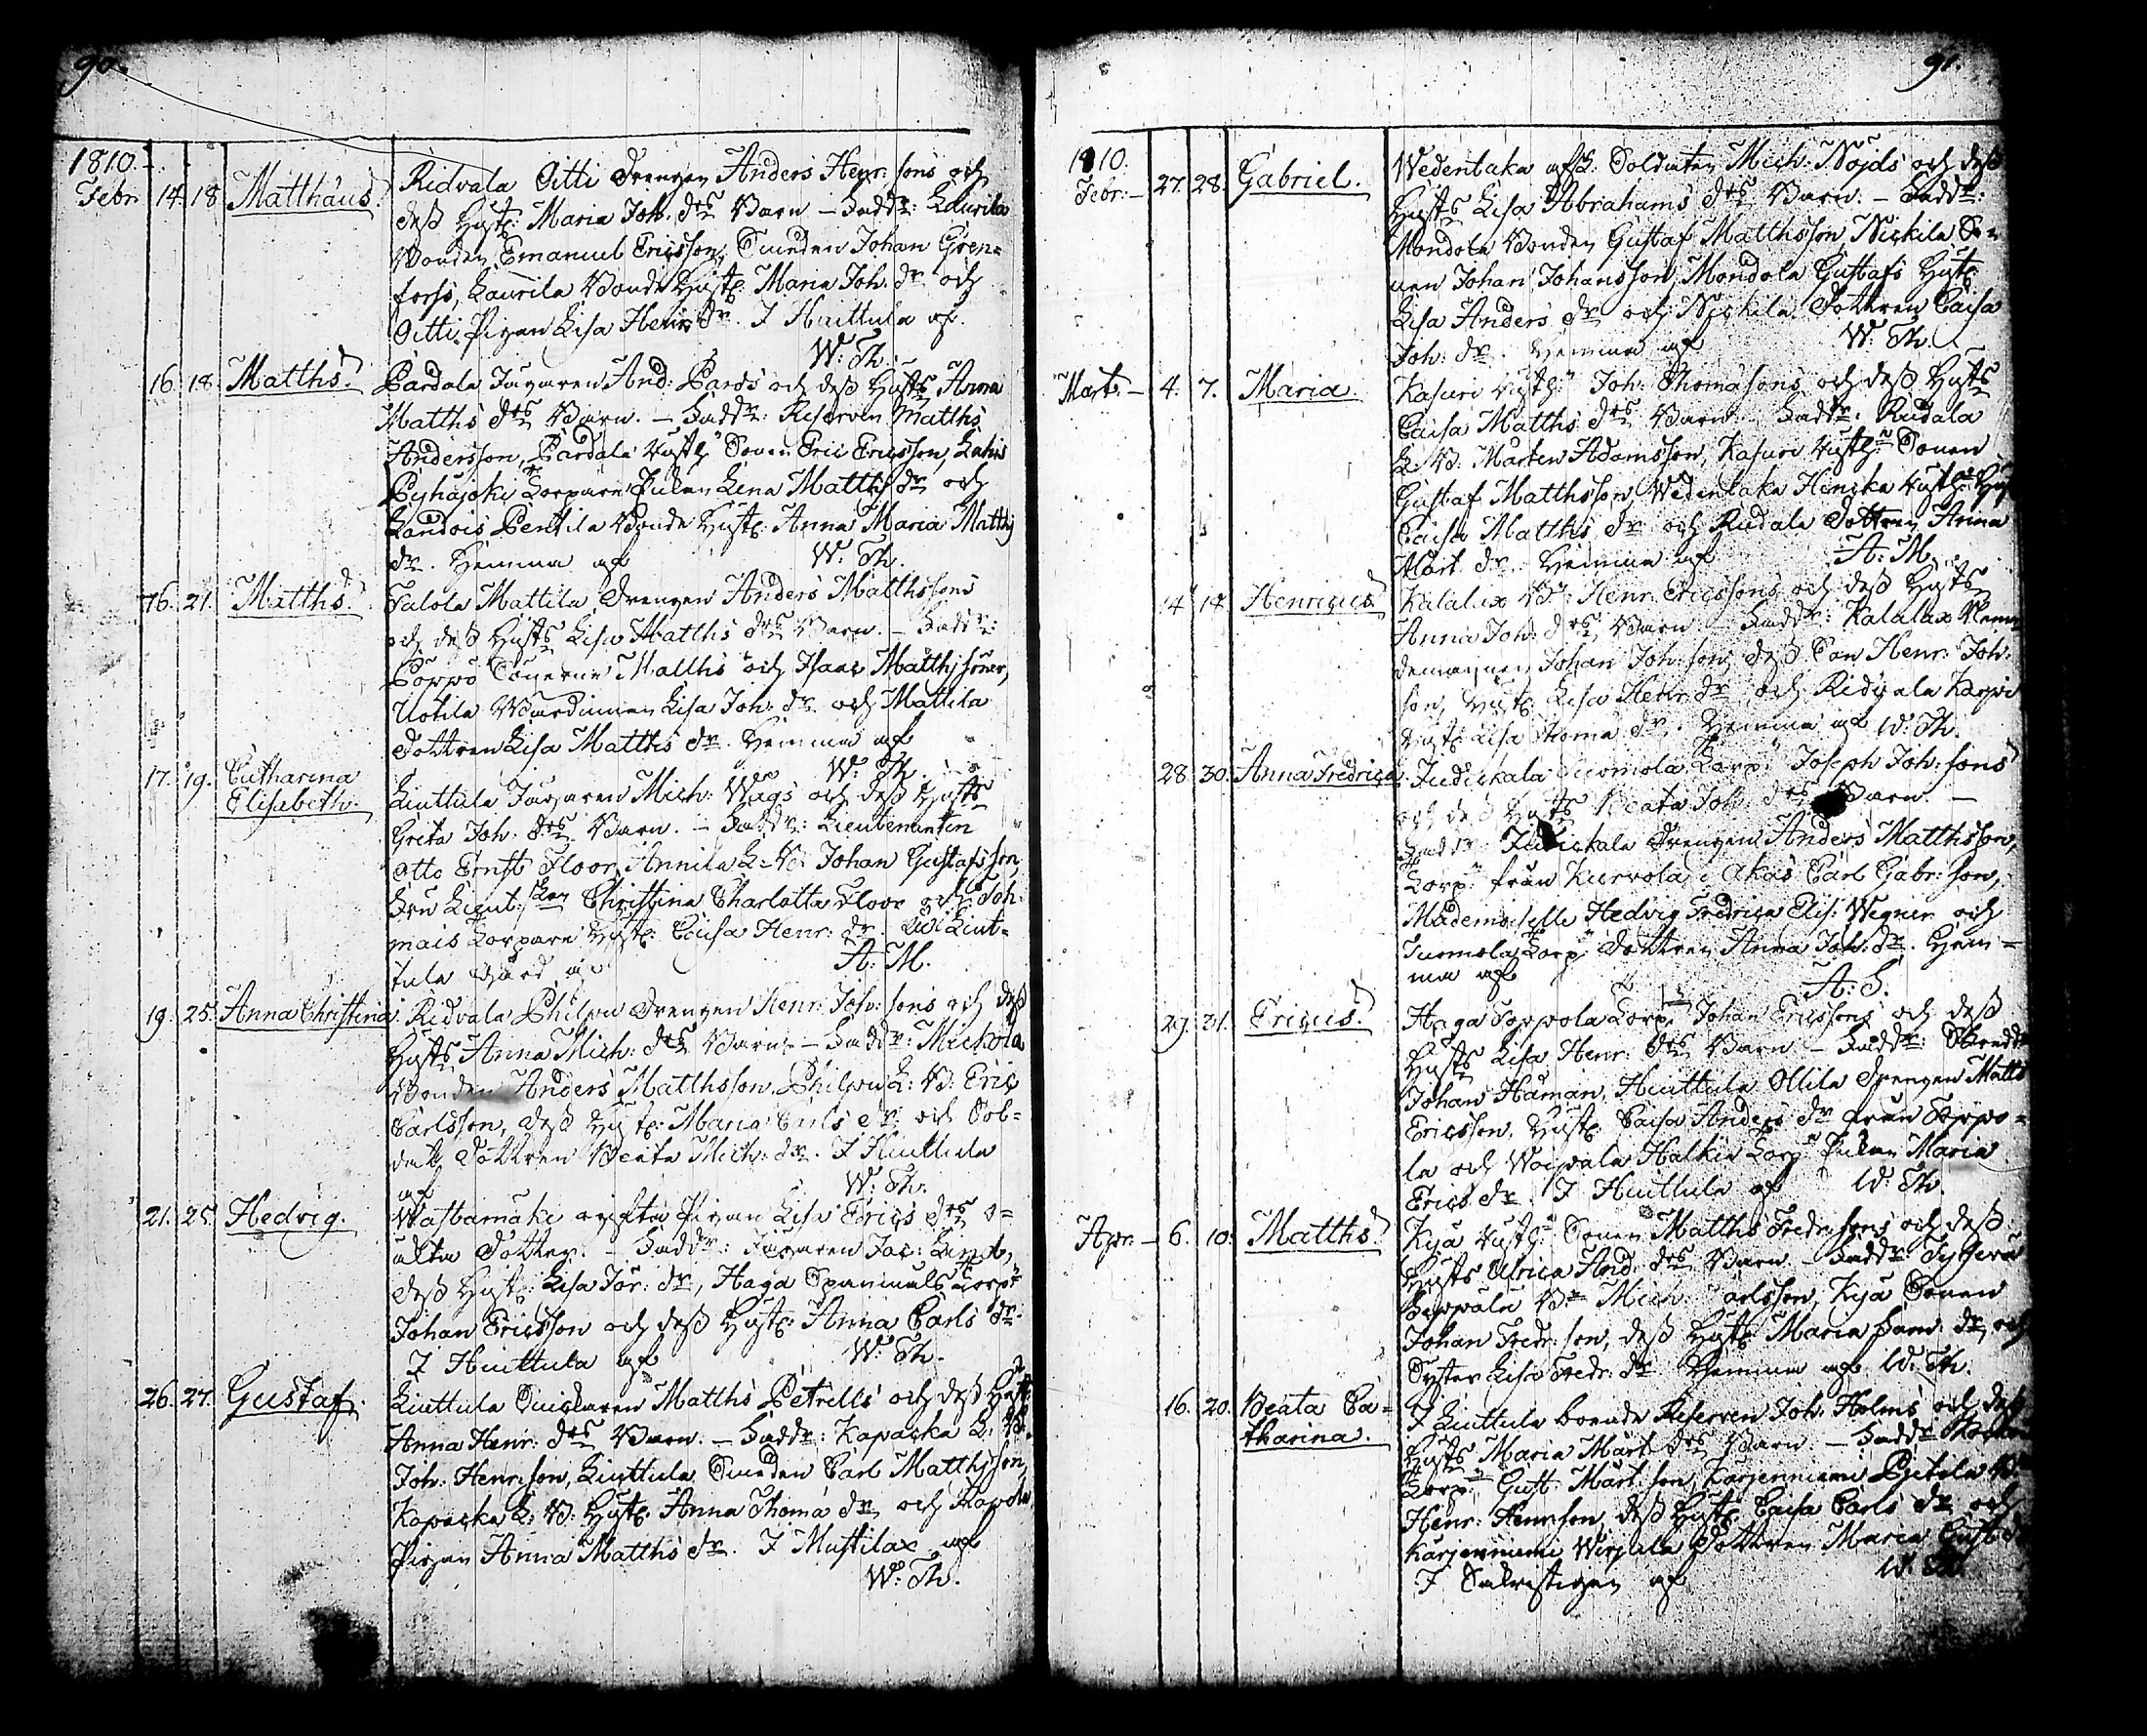 90.
1810.
Febr. 14. 18. Matthäus.
Ridvala Oitti Drengen Anders Henr: sons och
dess Hust: Maria Joh: drs Barn – Fadd: Laurila
Bonden Emanuel Ericsson, Smeden Johan Gren=
fors, Laurila Bonde Hust: Maria Joh: dr och
Oitti Pigan Lisa Henr: dr. I Huittula af
W: Th.
16. 18. Matths.
Pardala Jägaren And: Pards och dess Husts Anna
Matths drs Barn. – Fadd: Reserven Matths
Andersson, Pardala Rusth: Sonen Eric Ericsson,
Pyhäjoki Torpare Lena Matths dr och
Pentila Bonde Hust: Anna Maria Matths
dr. Hemma af W: Th.
16. 21. Matths.
Mattila Drengen Anders Matthssons
och dess Husts Lisa Matths drs Barn. – Fadd:
Sönerne Matths och Isaac Matthssöner,
Uotila Värdinnan Lisa Joh: dr. och Mattila
Dottren Lisa Matths dr. Hemma af
W: Th.
17. 19. Catharina
Elisabeth.
Liuttula Jägaren Mich: Wågs och dess Husts
Greta Joh: drs Barn. – Fadd: Lieutenanten
Otto Ernst Floor, Annila L: B: Johan Gustafsson,
Fru Lieut: skan Christina Charlotta Floor och Toh=
mais Torpare Hust: Caisa Henr: dr. Liut=
tula Gård af A: M.
19. 25. Anna Christina.
Ridvala Philpu Drengen Henr: Joh: sons och dess
Husts Anna Mich: drs Barn – Fadd: Mickola
Bonden Anders Matthsson, Philpu L: B: Eric
Carlsson, dess Hust: Maria Carls dr och Sol=
dats Dottren Beata Mich: dr. I Huittula
af W: Th.
21. 25. Hedvig.
Wastamäki ogifta Pigan Lisa Erics drs o=
äkta Dotter. – Fadd: Jägaren Jac: Lind,
dess Hust: Lisa Jör: dr, Haga Torp:
Johan Ericsson och dess Hust: Anna Carls dr.
I Huittula af W: Th.
26. 27. Gustaf.
Liuttula Snickaren Matths Petrells och dess Husts
Anna Henr: drs Barn. – Fadd: Kapaska L: B.
Joh: Henrsson, Liuttula Smeden Carl Matthsson,
Kapaska L: B: Hust: Anna Thoma dr och
Pigan Anna Matths dr. I Mustilax af
W: Th.
91.
1810.
Febr: – 27. 28. Gabriel.
Wedentaka afsk: Soldaten Mich: Nöjds och dess
Husts Lisa Abrahams drs Barn. – Fadd:
Mondola Bonden Gustaf Matthsson, Nickila So=
nen Johan Johansson, Mondola Gustafs Hust:
Lisa Anders dr och Nickila Dottren Caisa
Joh: dr. Hemma af W: Th.
Mart: – 4. 7. Maria.
Kasuri Rusth: Joh: Thomasons och dess Husts
Caisa Matths drs Barn. Fadd:
L: B: Mårten Adamsson, Kasuri Rusth: Sonen
Gustaf Matthsson, Wedentaka Rusth:
Caisa Matths dr och Dottren Anna
Märt dr. Hemma af A: M.
14. 18. Henricus.
Kalalax B: Henr: Ericssons och dess Husts
Anna Joh: drs Barn – Fadd: Kalalax Nemn
demannen Johan Joh: son, dess Son Henr: Joh:
son, Hust: Lisa Henr: dr och Ridvala
Hust: Lisa Thoma dr. Hemma af W: Th.
28. 30. Anna Fredrica.
Judickala Torp: Joseph Joh: sons
och dess Husts Beata Joh: drs Barn –
Fadd: Judickala Drengen Anders Matthsson,
Torp: från Kurvola i Akas Carl Gabr: son,
Mademoiselle Hedvig Fredrica Elis: Wegner och
Torp: Dottren Anna Joh: dr. Hem=
ma af A: S.
29. 31. Ericus.
Haga Torp: Johan Ericssons och dess
Husts Lisa Henr: drs Barn – Fadd:
Johan Haman, Huittula Ollila Drengen Matts
Ericsson, Hust: Caisa Anders dr från
la och Woipala Torp: Maria
Erics dr. I Huittula af W: Th.
Apr: – 6. 10. Matths.
Kyä Rusth: Sonen Matths Fredr: sons och dess
Husts Ulrica And: drs Barn – Fadd:
Mich: Carlsson, Kyä Sonen
Johan Fredr: son, dess Hust: Maria dr, och
Syster Lisa Fredr: dr. Hemma af W: Th.
16. 20. Beata Ca=
tharina.
I Liuttula boende Reserven Joh: Holms och dess
Husts Maria Märt drs Barn. – Fadd:
Torp: Gust: Märt: son, Karjenniemi B:
Henr: Henrsson, dess Hust: Caisa Carls dr och
Karjenniemi Dottren Maria Gust: dr
I Sakristigan af W: Th.